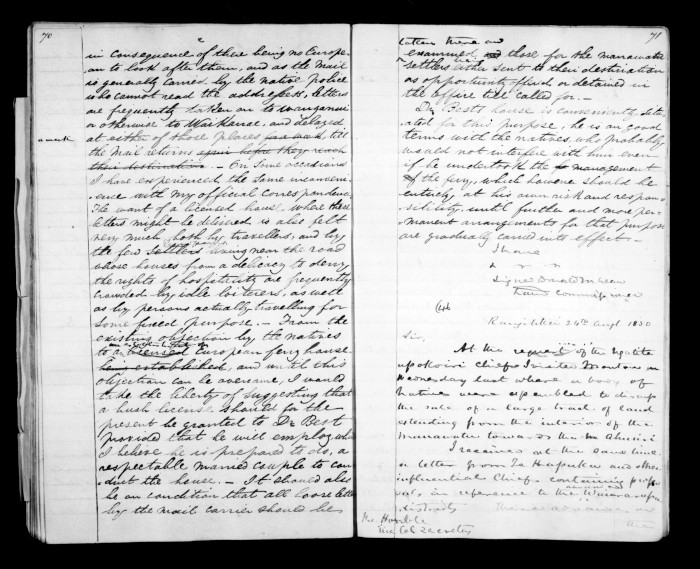 70
in consequence of there being no Europe-
an to look after them, and as the mail
is generally carried by the native police
who cannot read the address, letters
are frequently taken on to Wanganui
or otherwise to Waikanae. and delayed
a week
at either of those places for a week, till
the mail returns again before they reach
their destination. - On some occasions
I have experienced the same inconveni-
ence with my official correspondence
The want of a licensed house, where these
letters might be delivered is also felt
very much both by travellers, and by
the few settlers living near the road
whose houses from a delicacy to deny
the rights of hospitality are frequently
crowded by idle loiterers, as well
as by persons actually travelling for
some fixed purpose. - From the
existing objection by the natives
to a licensed European ferry house
being established, and until this
objection can be overcome, I would
take the liberty of suggesting that
a bush license should for the
present be granted to Dr Best
provided that he will employ, which
I believe he is prepared to do, a
respectable married couple to con-
duct the house. - It should also
be on condition that all loose letters
by the mail carrier should be
71
taken there and
examined and those for the manawatu
settlers sent to their destination
as opportunity offered or detained in
the office till called for. -
Dr Best's house is conveniently situ-
ated for this purpose, he is on good
terms with the natives, who probably
would not interfere with him even
if he undertook the management
of the ferry, which however should be
entirely at his own risk and respon-
sibility until further and more per-
manent arrangements for that purpose
are gradually carried into effect -
I have
Signed Donald McLean
Land Commissioner
Rangitikei 24th Augt 1850
Sir,
At the request of the Ngatite
upokoiri Chiefs I visited Manawatu on
Wednesday last where a body of
natives were assembled to discuss
the sale of a large tract of land
extending from the interior of the
Manawatu towards the Ahuriri
I received at the same time
a letter from Te Hapuku and other
influential Chiefs containing propo-
sals in reference to the Wairarapa
districts
The Honble
The Col Secretary